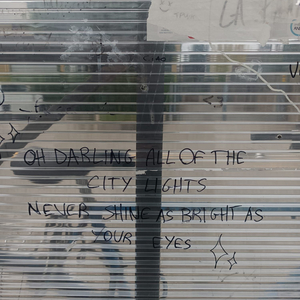 OH DARLING ALL OF THE
CITY LIGHTS
NEVER SHINE AS BRIGHT AS
YOUR EYES